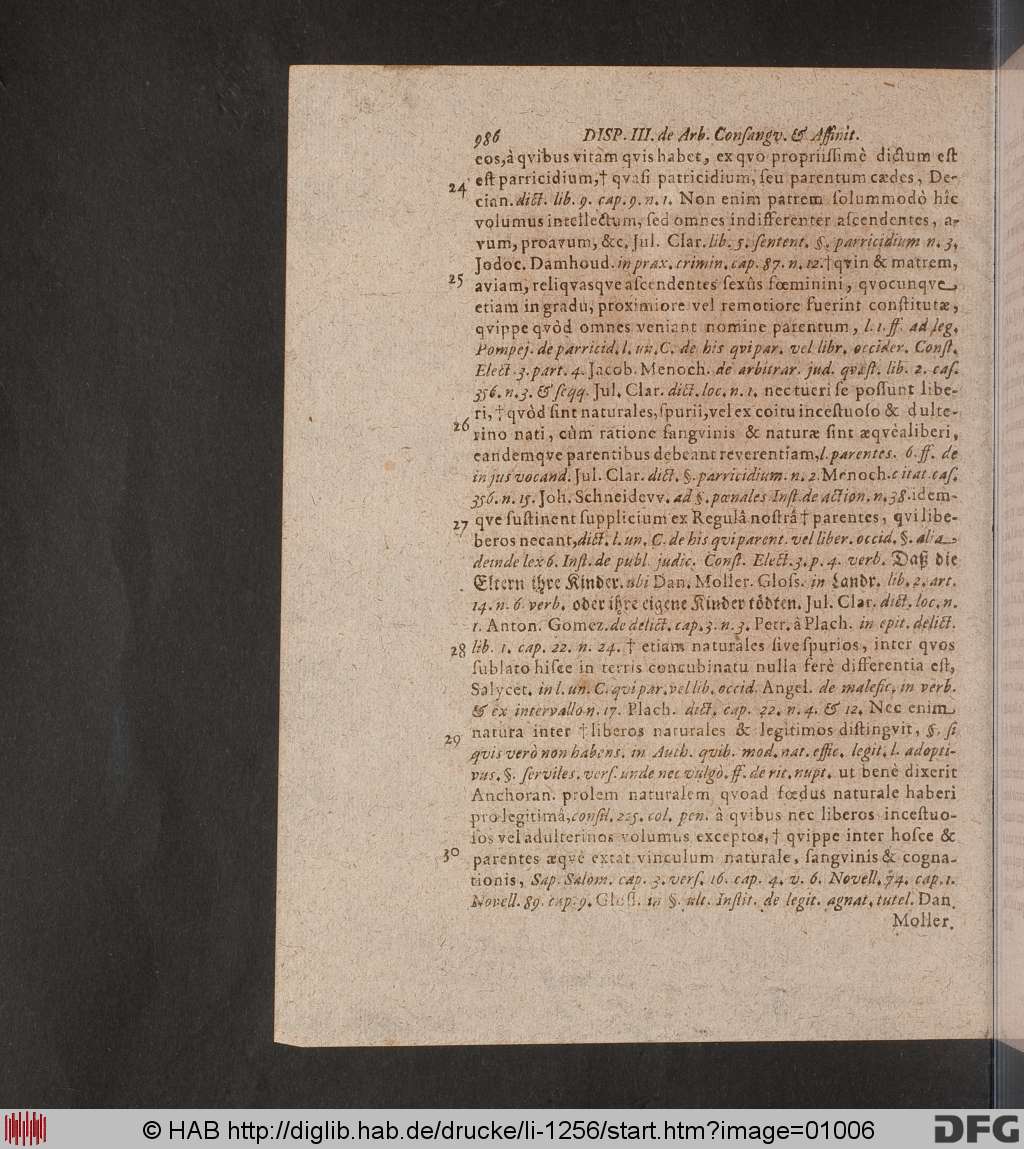 986 DISP. III. de Arb. Conſangv. & Affinit.
eos, à qvibus vitam qvis habet, ex qvo propriiſſimè dictum eſt
24 eſt parricidium, † qvaſi patricidium, ſeu parentum cædes, De-
cian. dict. lib. 9. cap. 9. n. 1. Non enim patrem ſolummodò hîc
volumus intellectum, ſed omnes indifferenter aſcendentes, a-
vum, proavum, &c. Jul. Clar. lib. 5. ſentent. §. parricidium n. 3.
Jodoc. Damhoud. in prax. crimin. cap. 87. n. 12. † qvin & matrem,
25 aviam, reliqvasqve aſcendentes ſexûs fœminini, qvocunqve
etiam in gradu, proximiore vel remotiore fuerint conſtitutæ,
qvippe qvòd omnes veniant nomine parentum, l. 1. ff. ad leg.
Pompej. de parricid. l. un. C. de his qvi par. vel libr. occider. Conſt.
Elect. 3. part. 4. Jacob. Menoch. de arbitrar. jud. qvæſt. lib. 2. caſ.
356. n. 3. & ſeqq. Jul. Clar. dict. loc. n. 1. nec tueri ſe poſſunt libe-
26 ri, † qvòd ſint naturales, ſpurii, vel ex coitu inceſtuoſo & dulte-
rino nati, cùm ratione ſangvinis & naturæ ſint æqvè aliberi,
eandemqve parentibus debeant reverentiam, l. parentes. 6. ff. de
in jus vocand. Jul. Clar. dict. §. parricidium. n. 2. Menoch. citat. caſ.
356. n. 15. Joh. Schneidevv. ad §. pœnales Inſt. de action. n. 38. idem-
27 qve ſuſtinent ſupplicium ex Regulâ noſtrâ † parentes, qvi libe-
beros necant, dict. l. un. C. de his qvi parent. vel liber. occid. §. alia
deinde lex 6. Inſt. de publ. judic. Conſt. Elect. 3. p. 4. verb. Daß die
Eltern ihre Kinder. ubi Dan. Moller. Gloſs. in Landr. lib. 2. art.
14. n. 6. verb. oder ihre eigene Kinder tödten. Jul. Clar. dict. loc. n.
1. Anton. Gomez. de delict. cap. 3. n. 3. Petr. à Plach. in epit. delict.
28 lib. 1. cap. 22. n. 24. † etiam naturales ſive ſpurios, inter qvos
ſublato hiſce in terris concubinatu nulla ferè differentia eſt,
Salycet. in l. un. C. qvi par. vel lib. occid. Angel. de malefic. in verb.
& ex intervallo n. 17. Plach. dict. cap. 22. n. 4. & 12. Nec enim
29 natura inter † liberos naturales & legitimos diſtingvit, §. ſi
qvis verò non habens. in Auth. qvib. mod. nat. effic. legit. l. adopti-
vus. §. ſerviles. verſ. unde nec vulgò. ff. de rit. nupt. ut benè dixerit
Anchoran. prolem naturalem qvoad fœdus naturale haberi
pro legitimâ, conſil. 225. col. pen. à qvibus nec liberos inceſtuo-
ſos vel adulterinos volumus exceptos, † qvippe inter hoſce &
30 parentes æqvè extat vinculum naturale, ſangvinis & cogna-
tionis, Sap. Salom. cap. 3. verſ. 16. cap. 4. v. 6. Novell. 74. cap. 1.
Novell. 89. cap. 9. Gloſſ. in §. ult. Inſtit. de legit. agnat. tutel. Dan.
Moller.
© HAB http://diglib.hab.de/drucke/li-1256/start.htm?image=01006
DFG